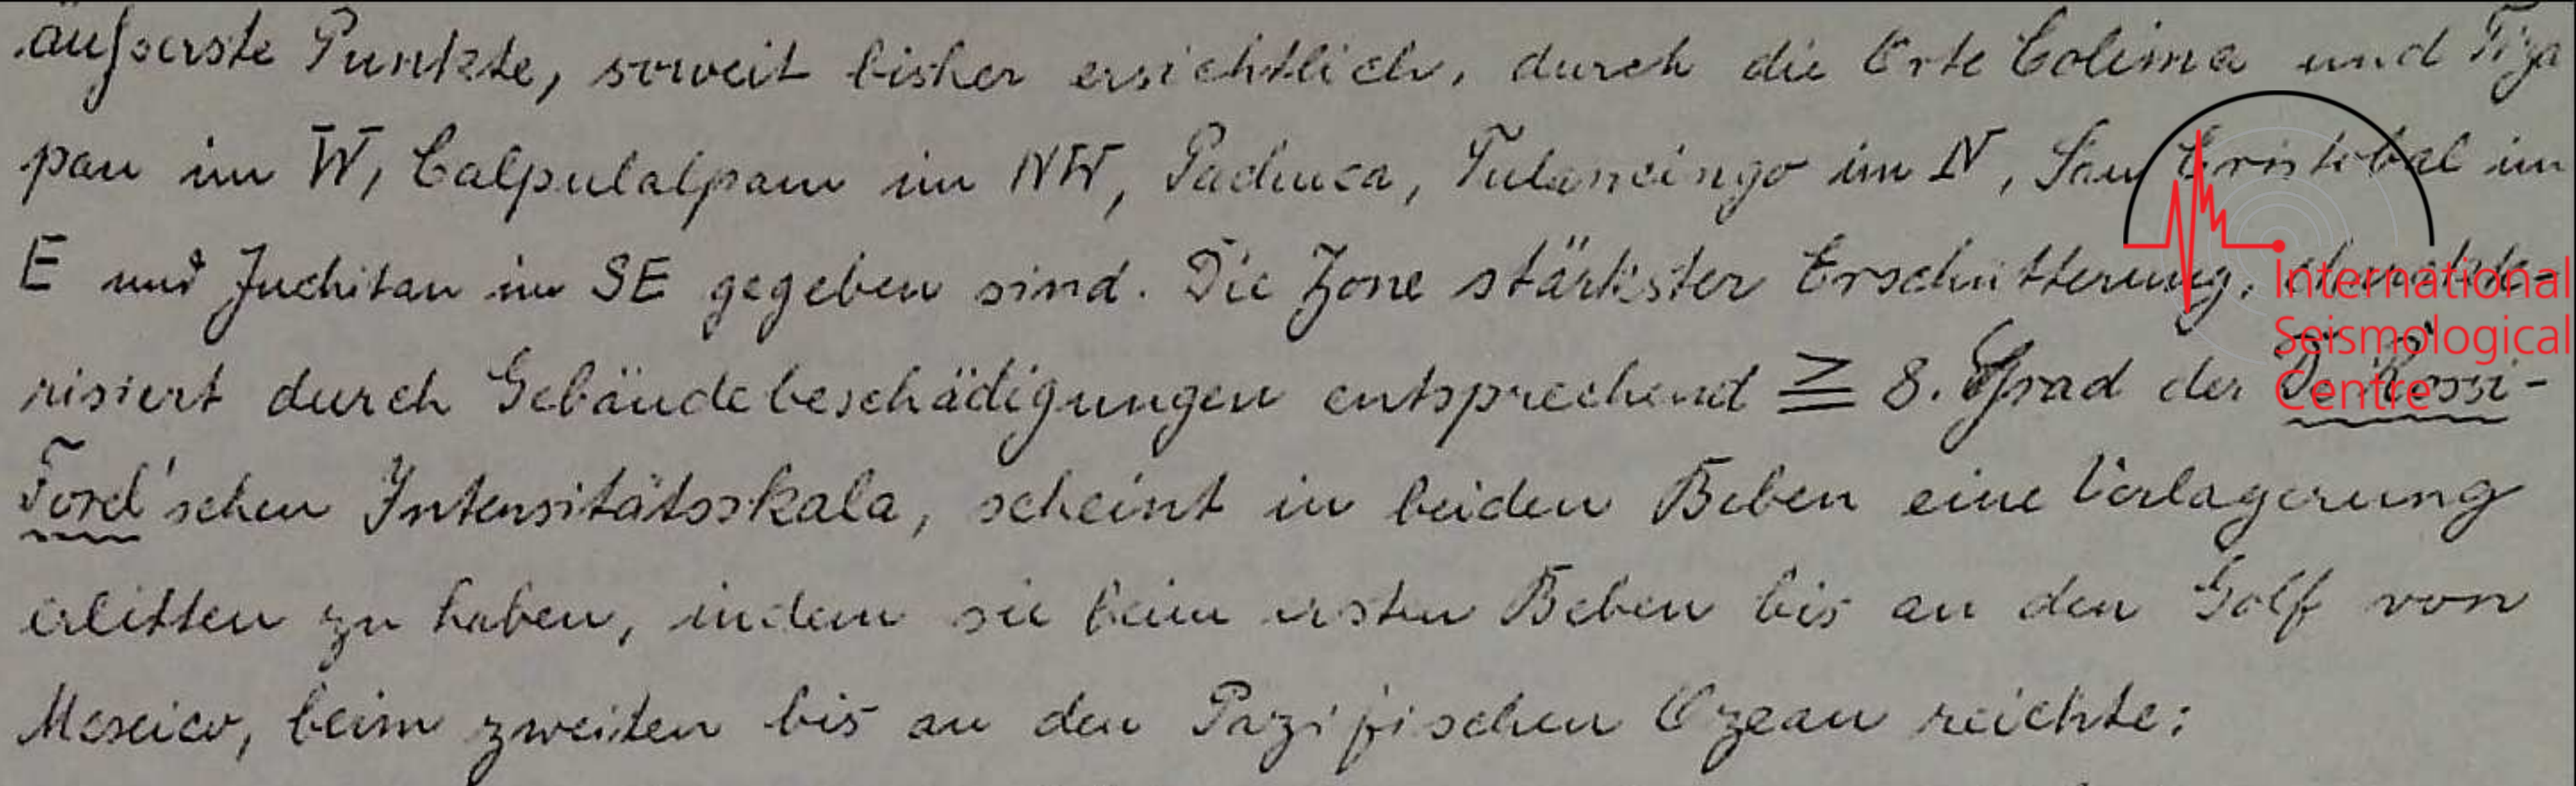 äusserste Punkte, soweit bisher ersichtlich, durch die Orte Colima und Tiza
pan im W, Calpulalpam im NW, Pachuca, Tulancingo im N, San Cristobal im
E und Juchitan im SE gegeben sind. Die Zone stärkster Erschütterung, charakte-
risiert durch Gebäudebeschädigungen entsprechend ≧ 8. Grad der De Rossi-
Forel'schen Intensitätsskala, scheint in beiden Beben eine Verlagerung
erlitten zu haben, indem sie beim ersten Beben bis an den Golf von
Mexico, beim zweiten bis an den Pazifischen Ozean reichte:
International
Seismological
Centre